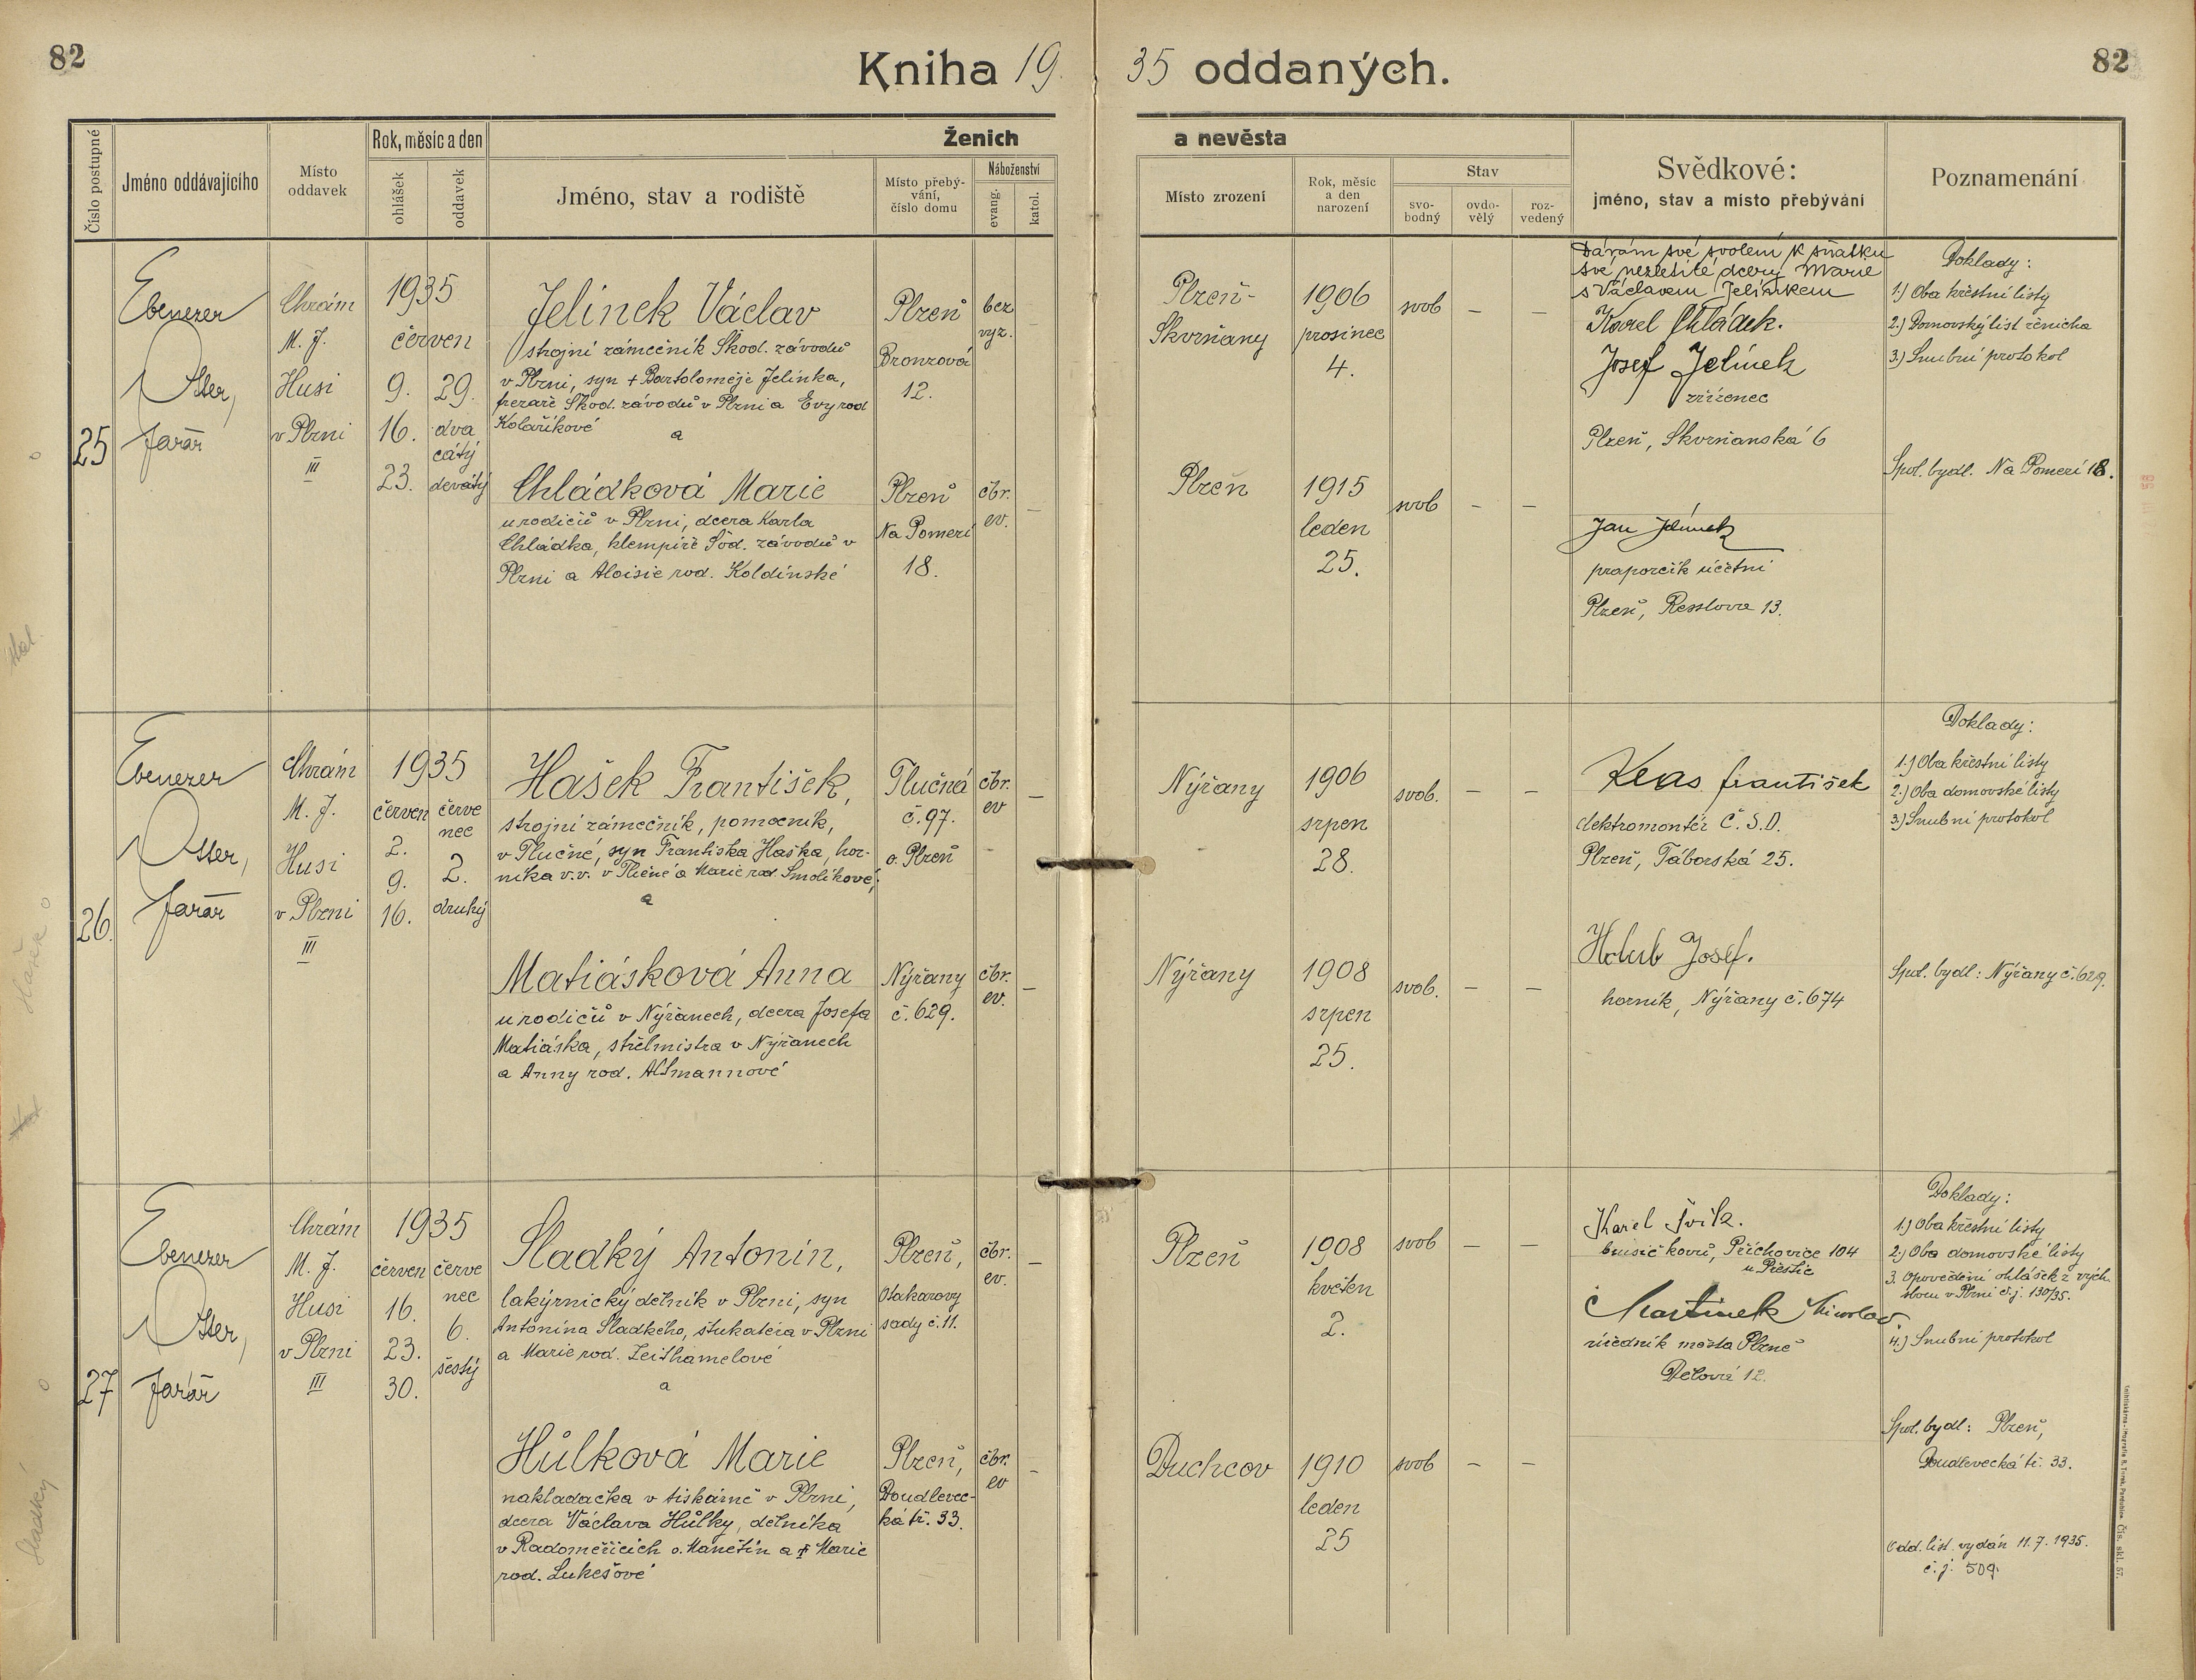 82
Kniha 19 35 oddaných.
82
Číslo postupné
Jméno oddávajícího
Místo oddavek
Rok, měsíc a den
ohlášek
oddavek
Ženich a nevěsta
Jméno, stav a rodiště
Místo přebývání, číslo domu
Náboženství
evang.
katol.
Místo zrození
Rok, měsíc a den narození
Stav
svobodný
ovdovělý
rozvedený
Svědkové:
jméno, stav a místo přebývání
Poznamenání
25
Ebenezer
Otter,
farář
Chrám
M. J.
Husi
v Plzni
III
1935
červen
9.
16.
23.
29.
dva
cátý
devátý
Jelínek Václav
strojní zámečník Škod. závodů
v Plzni, syn + Bartoloměje Jelínka,
frezaře Škod. závodů v Plzni a Evy rod
Kolaříkové
a
Plzeň
Bronzová
12.
bez
vyz.
–
Plzeň-
Skvrňany
1906
prosinec
4.
svob
–
–
Chládková Marie
u rodičů v Plzni, dcera Karla
Chládka, klempíře Šod. závodů v
Plzni a Aloisie rod. Koldinské
Plzeň
Na Pomezí
18.
čbr.
ev.
–
Plzeň
1915
leden
25.
svob
–
–
Dávám své svolení k sňatku
své nezletilé dcery Marie
s Václavem Jelínkem
Karel Chládek.
Josef Jelínek
zřízenec
Plzeň, Skvrňanská 6
Jan Jelínek
praporčík účetní
Plzeň, Resslova 13.
Doklady:
1.) Oba křestní listy
2.) Domovský list ženicha
3.) Snubní protokol
Spol. bydl. Na Pomezí 18.
26.
Ebenezer
Otter,
farář
Chrám
M. J.
Husi
v Plzni
III
1935
červen
2.
9.
16.
červe
nec
2.
druhý
Hašek František,
strojní zámečník, pomocník,
v Tlučné, syn Františka Haška, hor-
níka v.v. v Tlučné a Marie rod Smolíkové;
a
Tlučná
č. 97.
o. Plzeň
čbr.
ev
–
Nýřany
1906
srpen
28.
svob.
–
–
Matiásková Anna
u rodičů v Nýřanech, dcera Josefa
Matiáska, střelmistra v Nýřanech
a Anny rod. Altmannové
Nýřany
č. 629.
čbr.
ev.
–
Nýřany
1908
srpen
25.
svob.
–
–
František
elektromontér Č.S.D.
Plzeň, Táborská 25.
Holub Josef.
horník, Nýřany č. 674
Doklady:
1.) Oba křestní listy
2.) Oba domovské listy
3.) Snubní protokol
Spol. bydl: Nýřany č. 629.
27
Ebenezer
Otter,
farář
Chrám
M. J.
Husi
v Plzni
III
1935
červen
16.
23.
30.
červe
nec
6.
šestý
Sladký Antonín,
lakýrnický dělník v Plzni, syn
Antonína Sladkého, štukatéra v Plzni
a Marie rod. Zeithamelové
a
Plzeň,
Otakarovy
sady č. 11.
čbr.
ev.
–
Plzeň
1908
květen
2.
svob
–
–
Hůlková Marie
nakladačka v tiskárně v Plzni,
dcera Václava Hůlky, dělníka
v Radoměřicích o. Manětín a + Marie
rod. Lukešové
Plzeň,
Doudlevec-
ká tř. 33.
čbr.
ev
–
Duchcov
1910
leden
25
svob
–
–
Karel
brusič kovů, Příchovice 104
u Přeštic
Martinek Miroslav
úředník města Plzně
Dělová 12.
Doklady:
1.) Oba křestní listy
2.) Oba domovské listy
3. Opovědění ohlášek z vých.
sboru v Plzni č.j. 130/35.
4.) Snubní protokol
Spol. bydl: Plzeň,
Doudlevecká tř. 33.
Odd. list. vydán 11.7.1935.
č.j. 509.
Hašek
Sladký
Čís. skl. 57.